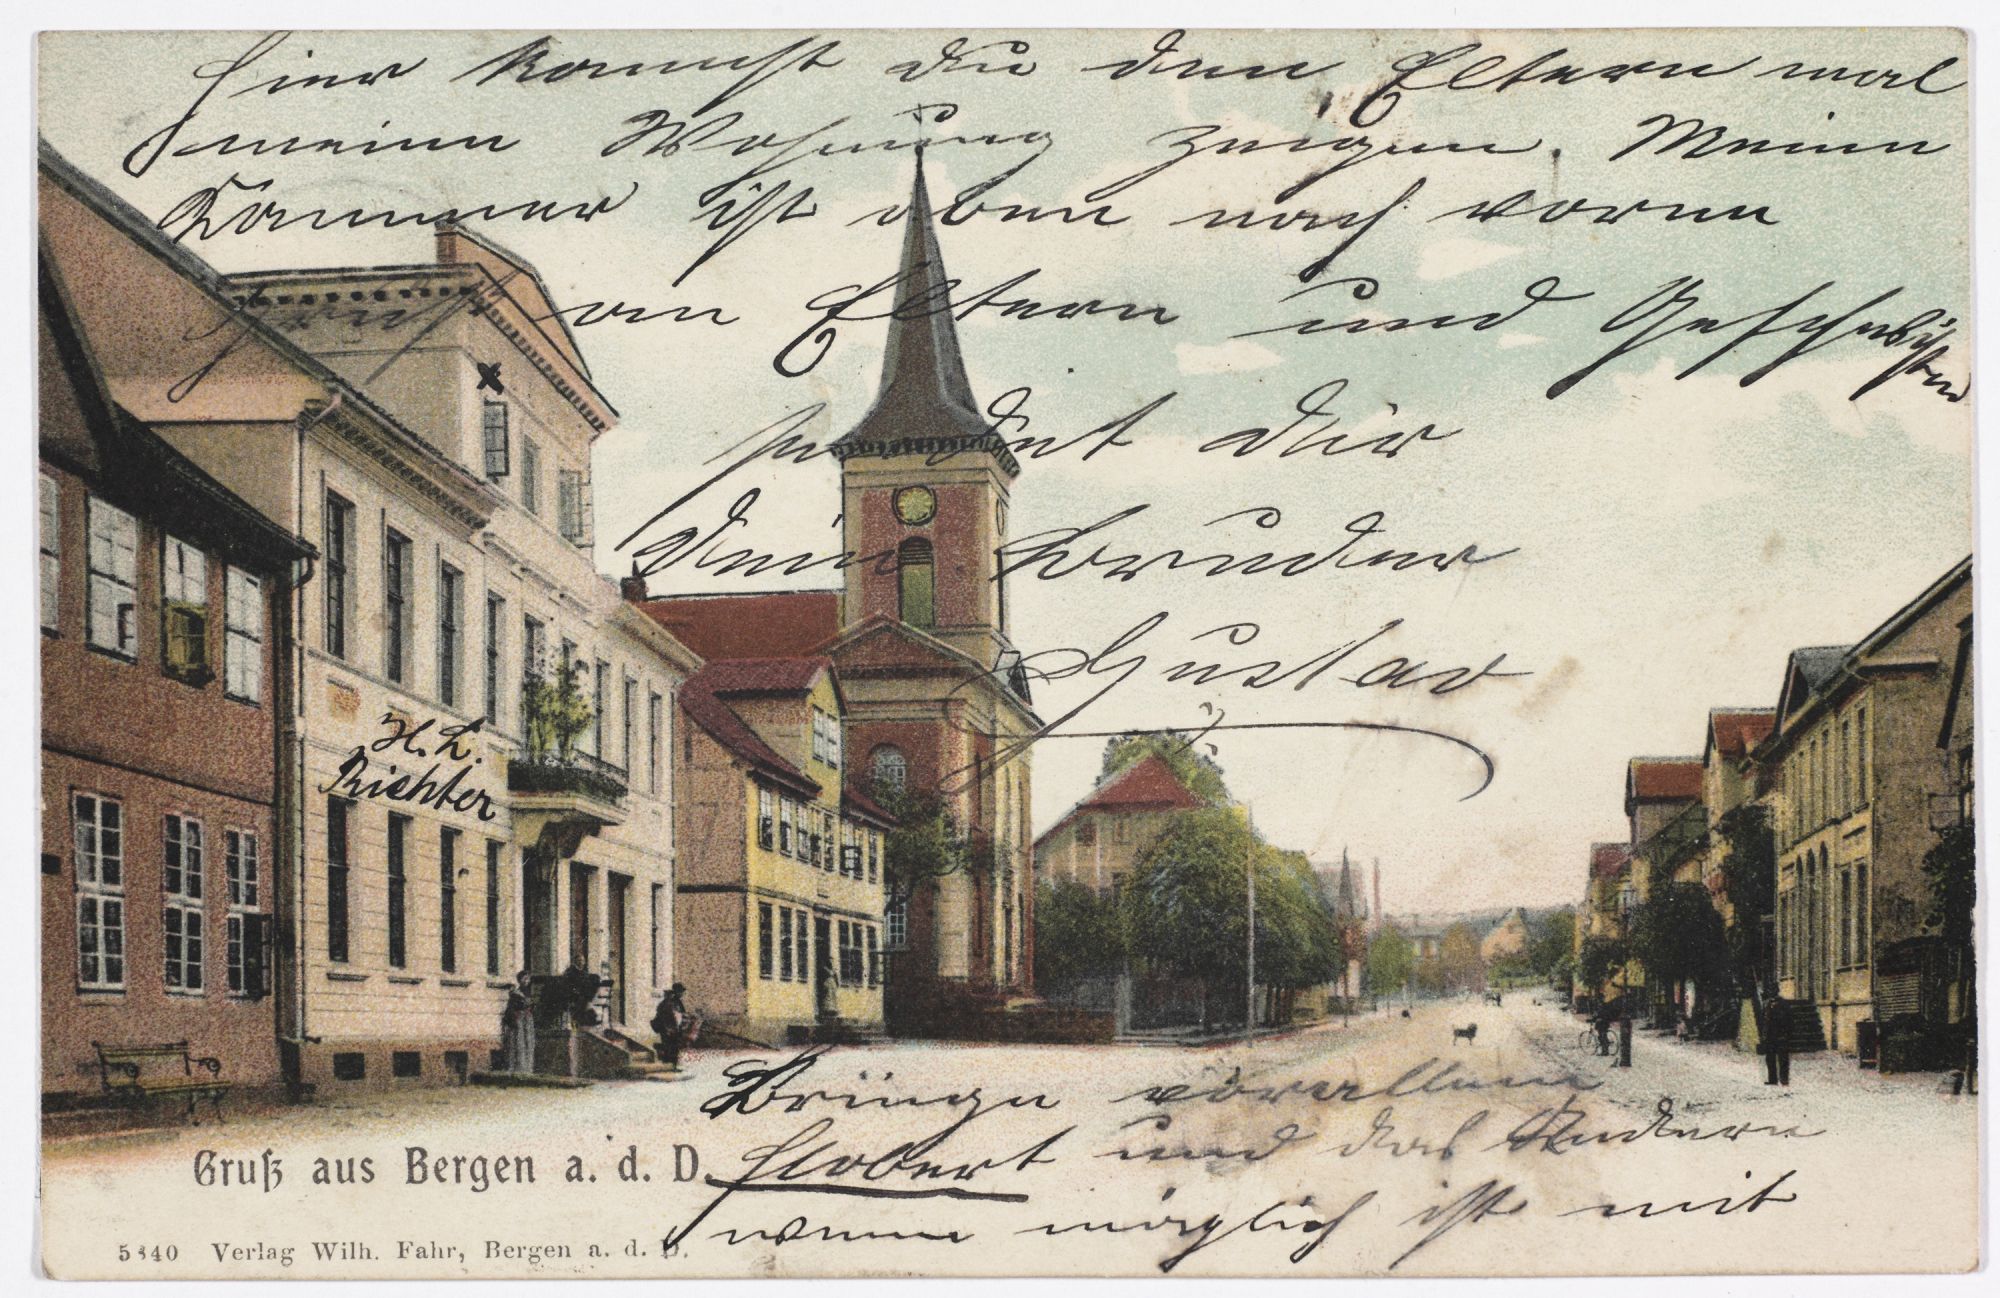 Hier kannst du den Eltern mal
meine Wohnung zeigen. Meine
Kammer ist oben nach vorne
Gruß an Eltern und Geschwister
sendet dir
dein Bruder
Gustav
H. L.
Richter
Bringe vor allem
Flobert und das Andere
wenn möglich ist mit
Gruß aus Bergen a. d. D.
5840 Verlag Wilh. Fahr, Bergen a. d. D.